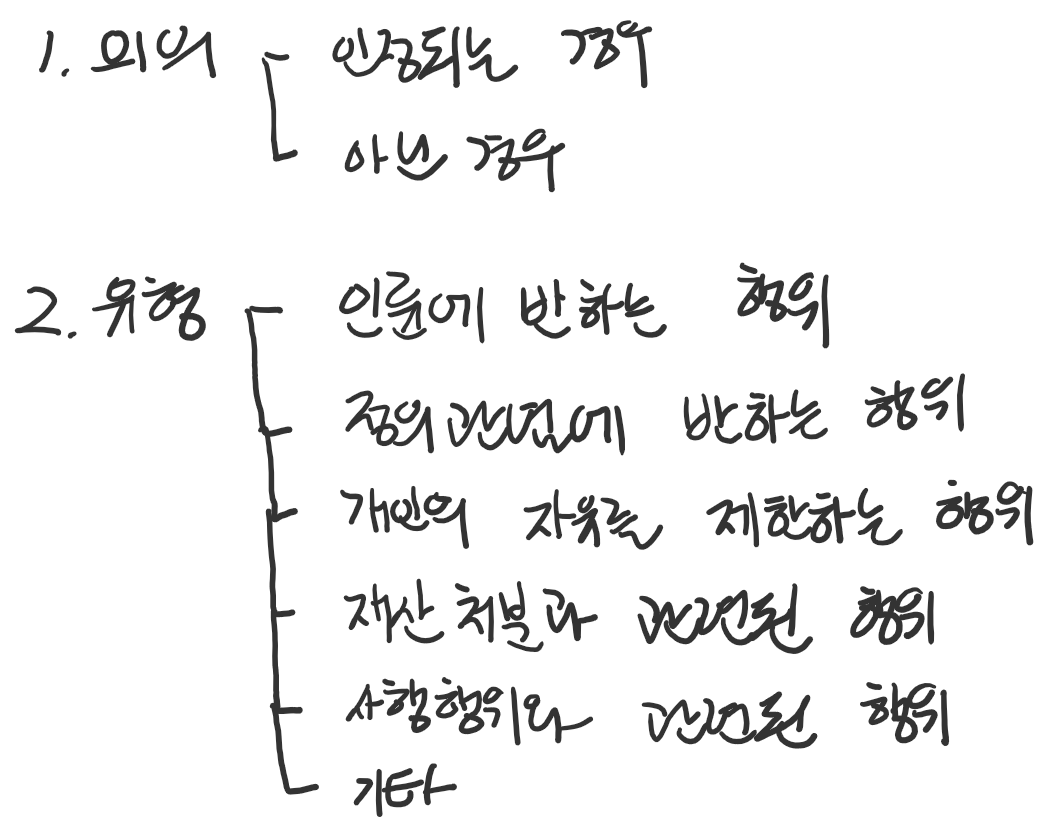 1. 의의 인정되는 경우
아닌 경우
2. 유형 인륜에 반하는 행위
정의관념에 반하는 행위
개인의 자유를 제한하는 행위
재산 처분과 관련된 행위
사행행위와 관련된 행위
기타